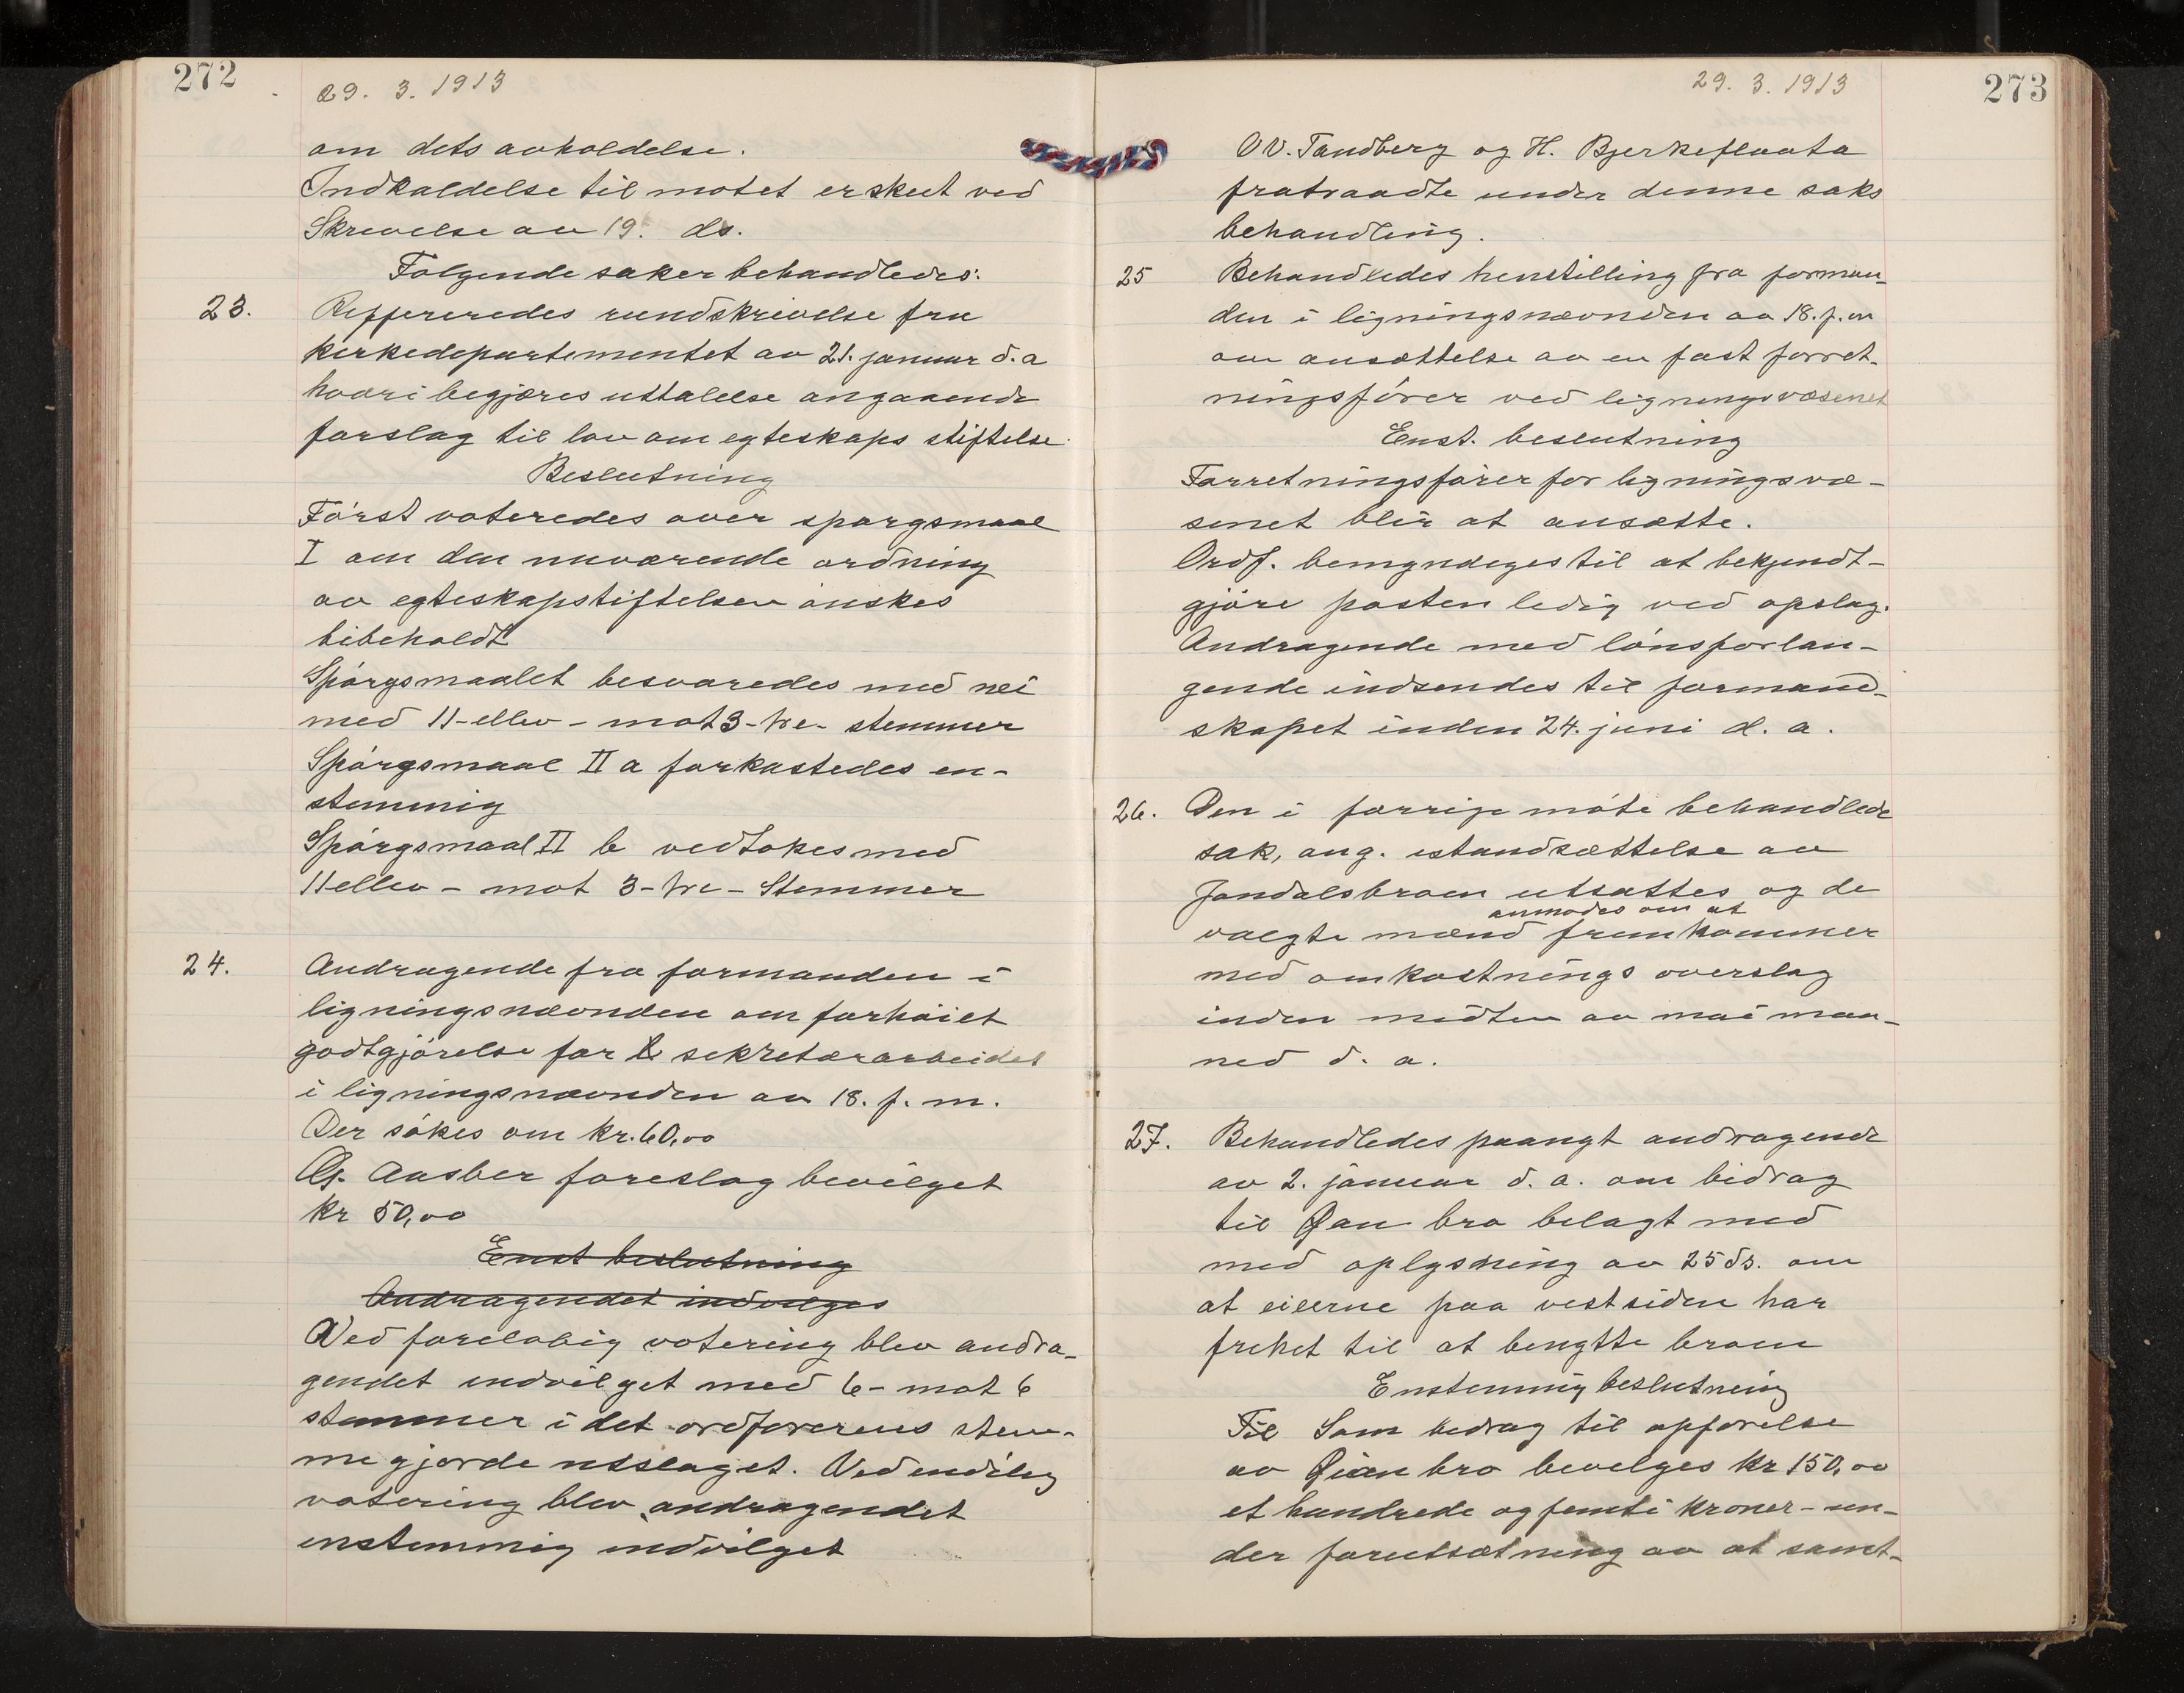 272
29. 3. 1913
om dets avholdelse.
Indkaldelse til motet er skeet ved
Skrivelse av 19. ds.
Følgende saker behandledes:
23. Reffereredes rundskrivelse fra
kirkedepartementet av 21. januar d. a
hvori begjæres uttalelse angaaende
forslag til lov om egteskaps stiftelse.
Beslutning
Først voteredes over spørgsmaal
I om den nuværende ordning
av egteskapstiftelsen ønskes
bibeholdt
Spørgsmaalet besvaredes med nei
med 11-ellev- mot 3-tre- stemmer
Spørgsmaal II a forkastedes en-
stemmig
Spørgsmaal II b vedtokes med
11 ellev - mot 3-tre- Stemmer
24. Andragende fra formanden i
ligningsnævnden om forhøiet
godtgjørelse for sekretærarbeidet
i ligningsnævnden av 18. f. m.
Der søkes om kr. 60,00
G. Aasber foreslog bevilget
kr 50,00
Enst beslutning
Andragendet indvilges
Ved foreløbig votering blev andra-
gendet indvilget med 6- mot 6
stemmer i det ordførerens stem-
me gjorde utslaget. Ved endelig
votering blev andragendet
enstemmig indvilget
273
29. 3. 1913
O V. Tandberg og H. Bjerkeflaata
fratraadte under denne saks
behandling.
25 Behandledes henstilling fra forman-
den i ligningsnævnden av 18. f. m
om ansættelse av en fast forret-
ningsfører ved ligningsvæsenet
Enst. beslutning
Forretningsfører for ligningsvæ-
senet blir at ansætte.
Ordf. bemyndiges til at bekjendt-
gjøre posten ledig ved opslag.
Andragende med lønsforlan-
gende indsendes til formand-
skapet inden 24. juni d. a.
26. Den i forrige møte behandlede
sak, ang. istandsættelse av
Jondalsbroen utsattes og de
anmodes om at
valgte mænd fremkommer
med omkostnings overslag
inden midten av mai maa-
ned d. a.
27. Behandledes paangt andragende
av 2. januar d. a. om bidrag
til Øian bro belagt med
med oplysning av 25 ds. om
at eierne paa vestsiden har
frihet til at benytte broen
Enstemmig beslutning
Til Som bidrag til opførelse
av Øian bro bevilges kr 150,00
et hundrede og femti kroner - un-
der forutsætning av at samt-